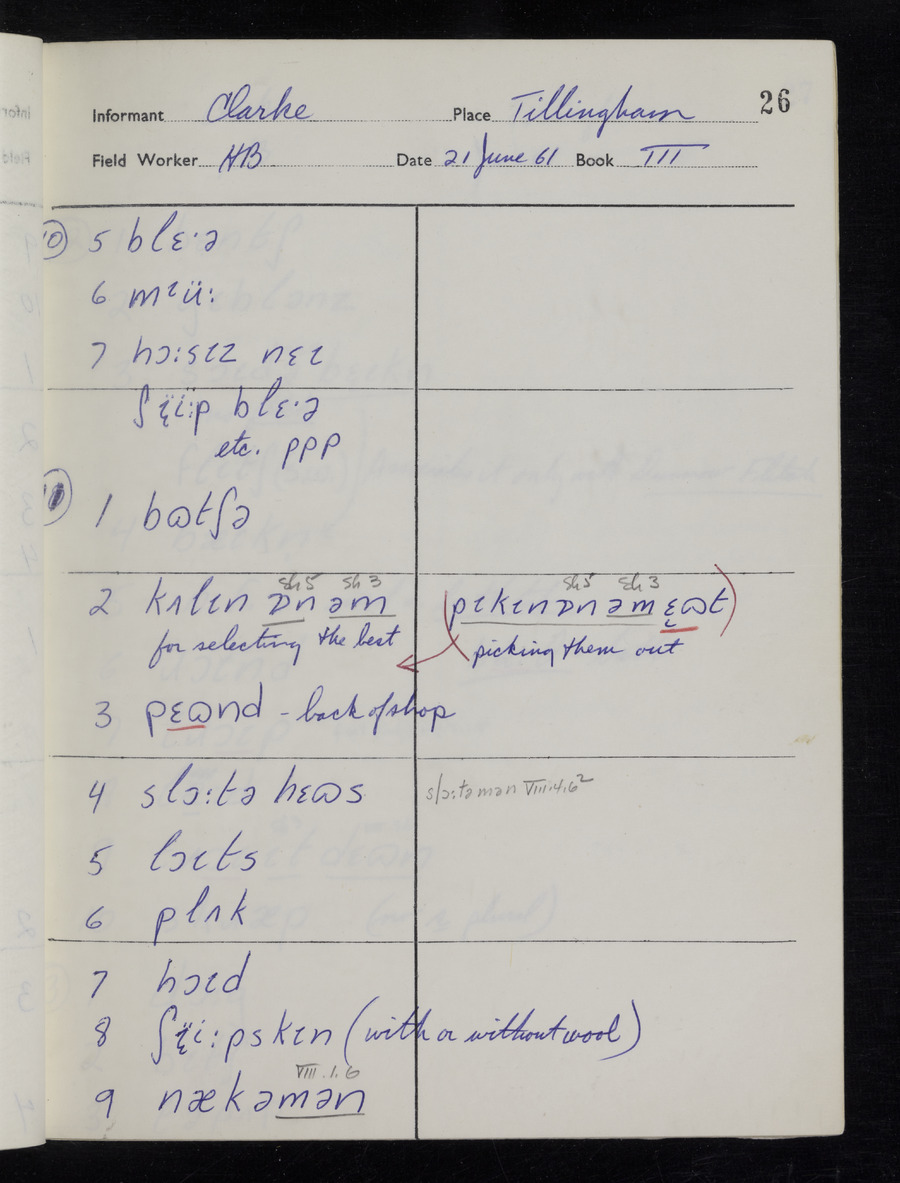 26
Informant Clarke Place Tillingham
Field Worker HB Date 21 June 61 Book III
10 5 blɛ·ə
6 mɪü:
7 hɔ:sɪz nɛɪ
ʃɪ̈i:p blɛ·ə
etc. ppp
1 bɷtʃə
sh 5 sh 3 sh 5 sh 3
2 kʌlɪn ɒn əm (pɪkɪn ɒn əm ɛɷt)
for selecting the best picking them out
3 pɛɷnd - back of shop
4 slɔ:tə hɛɷs slɔ:təmən VIII.4.6²
5 lɔɪts
6 plʌk
7 hɔɪd
8 ʃɪ̈i:pskɪn (with or without wool)
VIII.1.6
9 nækəmən